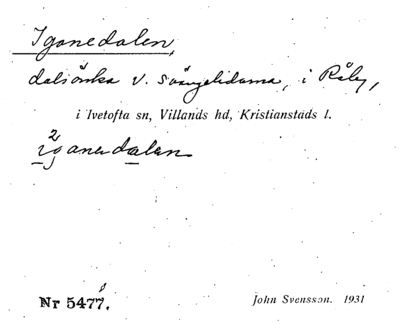 Iganedalen,
dalsänka v. Svängelidarna, i Råby,
i Ivetofta sn, Villands hd, Kristianstads l.
2
iganedalen
Nr 5477.
John Svensson. 1931